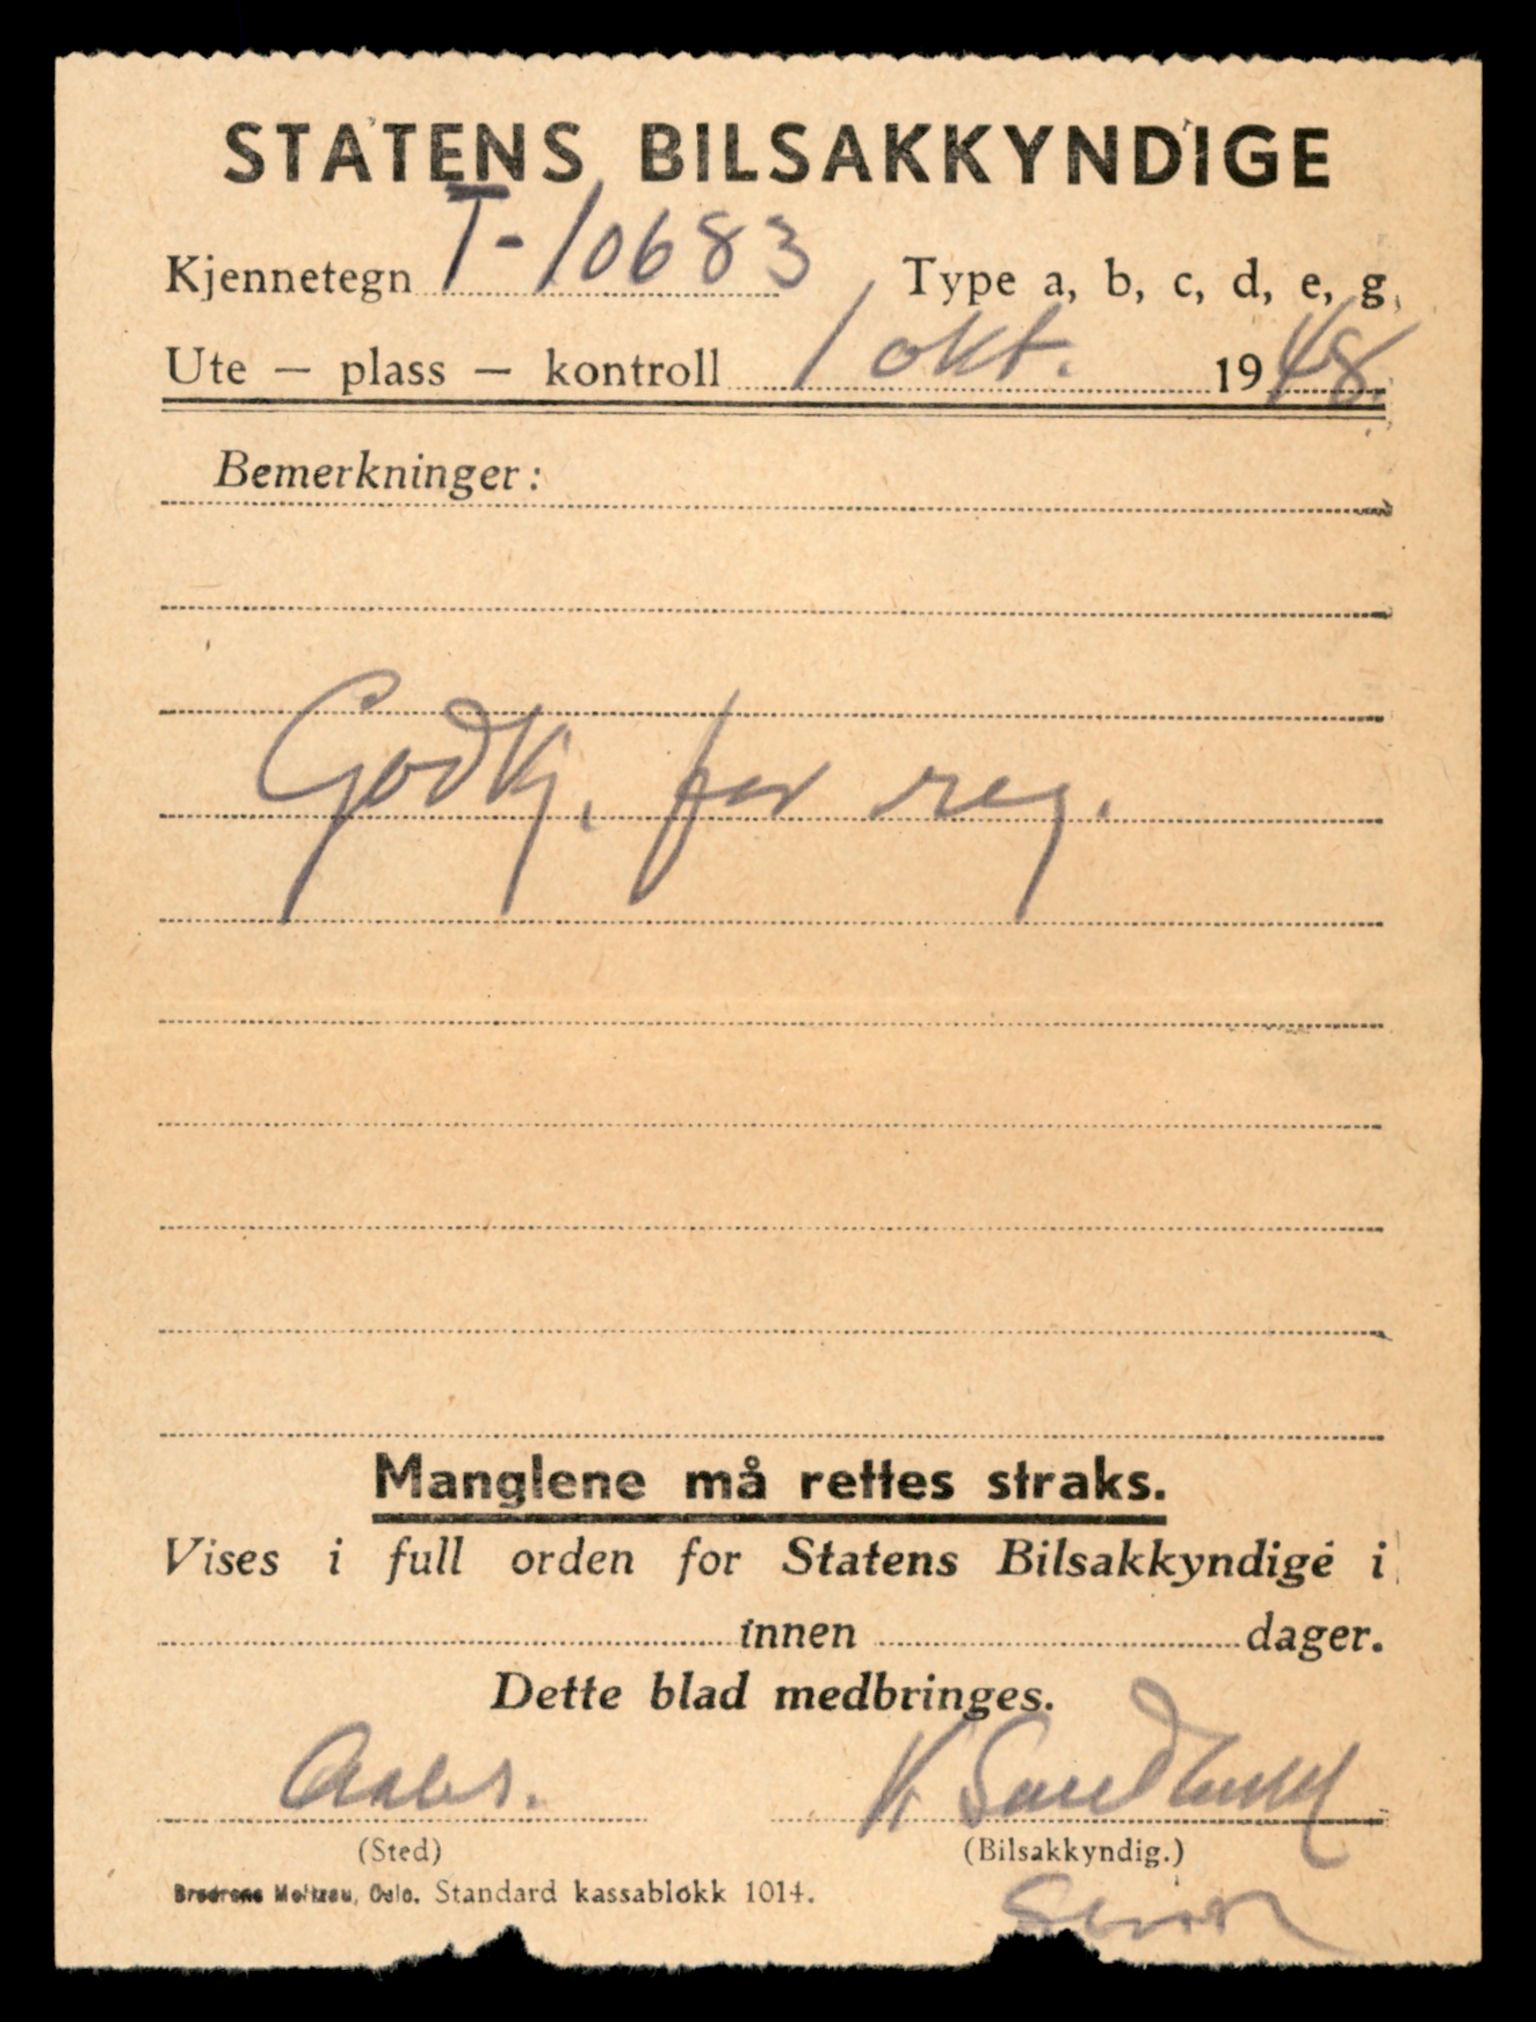 STATENS BILSAKKYNDIGE
Kjennetegn T-10683 Type a, b, c, d, e, g,
Ute — plass — kontroll 1 okt. 1948
Bemerkninger:
Godkj. for reg.
Manglene må rettes straks.
Vises i full orden for Statens Bilsakkyndige i
innen dager.
Dette blad medbringes.
Aales. K Sandlund
(Sted) (Bilsakkyndig.)
Brødrene Meltzau, Oslo. Standard kassablokk 1014.